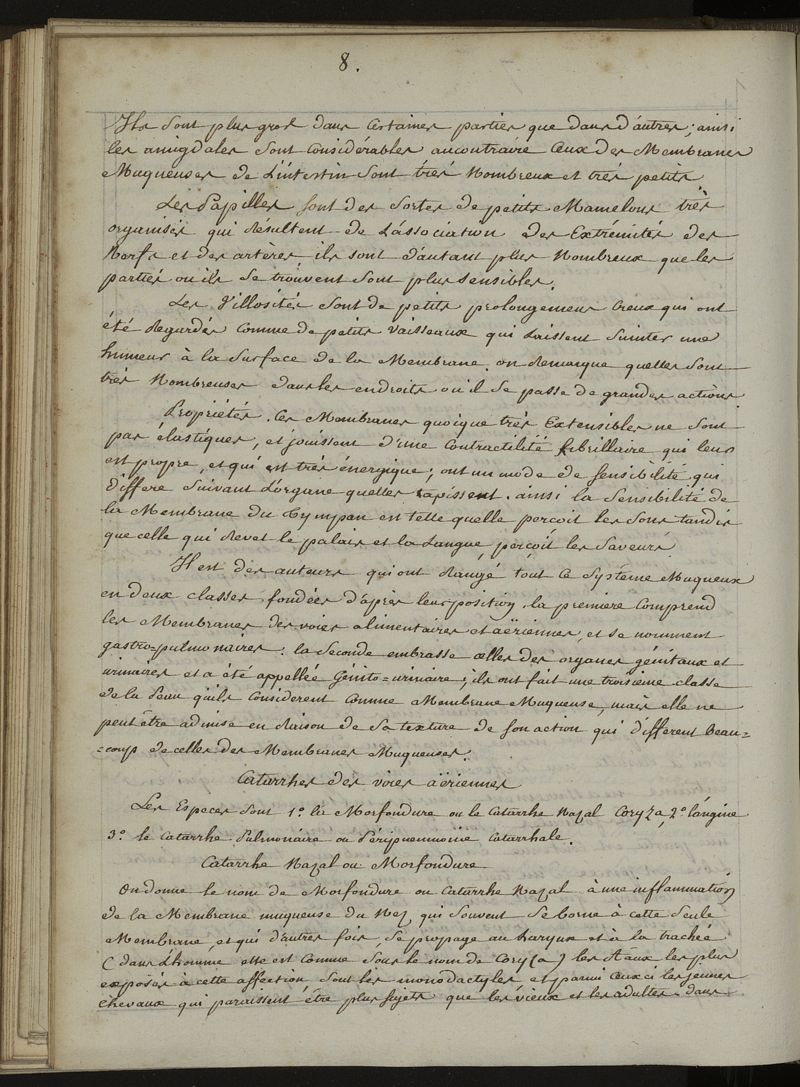 8.
Ils sont plus gros dans certaines parties que dans d'autres; ainsi
les amigdales sont considérables aucontraire ceux des Membranes
Muqueuses de L'intestin sont très Nombreux et très petits
Les Papilles sont des sortes de petits Mamelons très
organisés qui résultent de L'association des Extrémités des
Nerfs et des artères ils sont d'autant plus Nombreux que les
parties ou ils se trouvent sont plus sensibles.
Les Villosités sont de petits prolongemens creux qui ont
été regardés comme de petits Vaisseaux qui Laissent suinter une
humeur à la surface de la Membrane. on remarque quelles sont
très Nombreuses dans les endroits ou il se passe de grandes actions
Propriétés. Ces Membranes quoique très Extensibles ne sont
pas élastiques, et jouissent d'une contractilité fibrillaire qui leur
est propre, et qui est très énergique; ont un mode de sensibilité qui
differe suivant L'organe quelles tapissent. ainsi la sensibilité de
la Membrane du Tympan est telle quelle perçoit les sons tandis
que celle qui revet le palais et la Langue perçoit les saveurs
Il est des auteurs qui ont rangé tout ce système Muqueux
en deux classes fondées d'après leur position. la premiere comprend
les Membranes des voies alimentaires et aëriennes, et se nomment
gastro-pulmonaires: la seconde embrasse celles des organes génitaux et
urinaires et a été appellée Génito=urinaire; ils ont fait une troisieme classe
de la Peau qu'ils considerent comme Membrane Muqueuse, mais elle ne
peut être admise en raison de sa texture de son action qui different Beau=
=coup de celles des Membranes Muqueuses.
Catarrhes des voies aëriennes
Les Especes sont 1.º la Morfondure ou le Catarrhe Nazal Coryza, 2.º l'angine
3.º le Catarrhe Pulmonaire ou Péripneumonie Catarrhale.
Catarrhe Nazal ou Morfondure
On donne le nom de Morfondure ou Catarrhe Nazal à une inflammation
de la Membrane muqueuse du Nez qui souvent se borne à cette seule
Membrane, et qui d'autres fois, se propage au haryux et à la trachée
(dans L'homme elle est comme sous le nom de Coryza) les Aaux les plus
exposés à cette affection sont les monodactyles et parmi ceux ci les jeunes
chevaux qui paraissent être plus sujets que les vieux et les adultes. dans